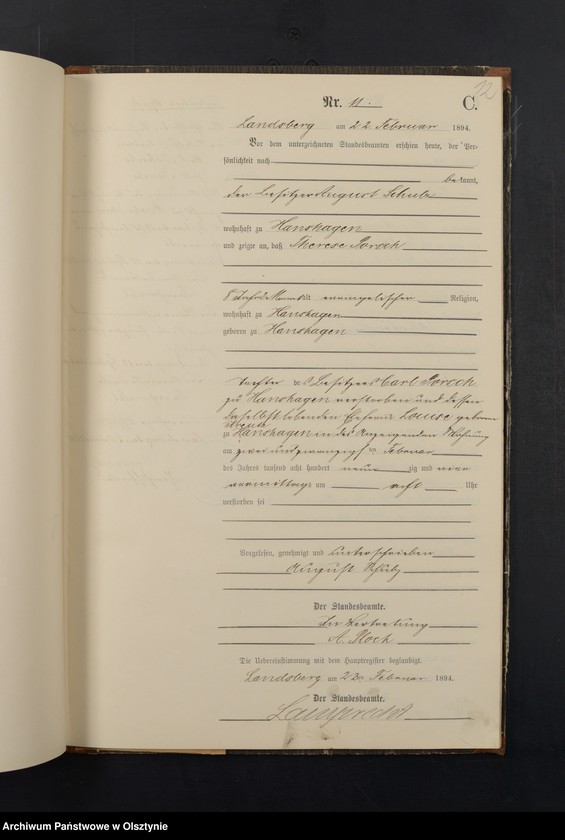 12
Nr. 11. C.
Landsberg am 22. Februar 1894.
Vor dem unterzeichneten Standesbeamten erschien heute, der Per-
sönlichkeit nach
bekannt,
der Besitzer August Schulz
wohnhaft zu Hanshagen
und zeigte an, daß Therese Porsch
8 Jahr Monat alt evangelischer Religion,
wohnhaft zu Hanshagen
geboren zu Hanshagen
Tochter des Besitzers Carl Porsch
zu Hanshagen verstorben und dessen
daselbst lebenden Ehefrau Louise geborne
zu Hanshagen in des Anzeigenden Wohnung
am zwei und zwanzigsten Februar
des Jahres tausend acht hundert neunzig und vier
vormittags um acht Uhr
verstorben sei
Vorgelesen, genehmigt und unterschrieben
August Schulz
Der Standesbeamte.
In Vertretung
A. Bloch
Die Uebereinstimmung mit dem Hauptregister beglaubigt.
Landsberg am 22. Februar 1894.
Der Standesbeamte.
Archiwum Państwowe w Olsztynie